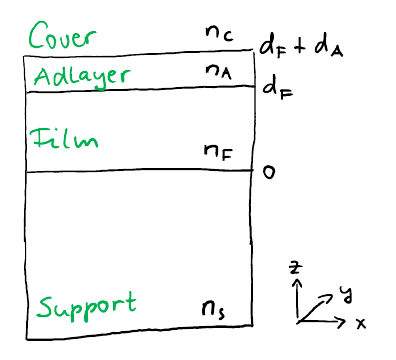 Cover n_C
d_F + d_A
Adlayer n_A
d_F
Film n_F
0
Support n_s
z
y
x